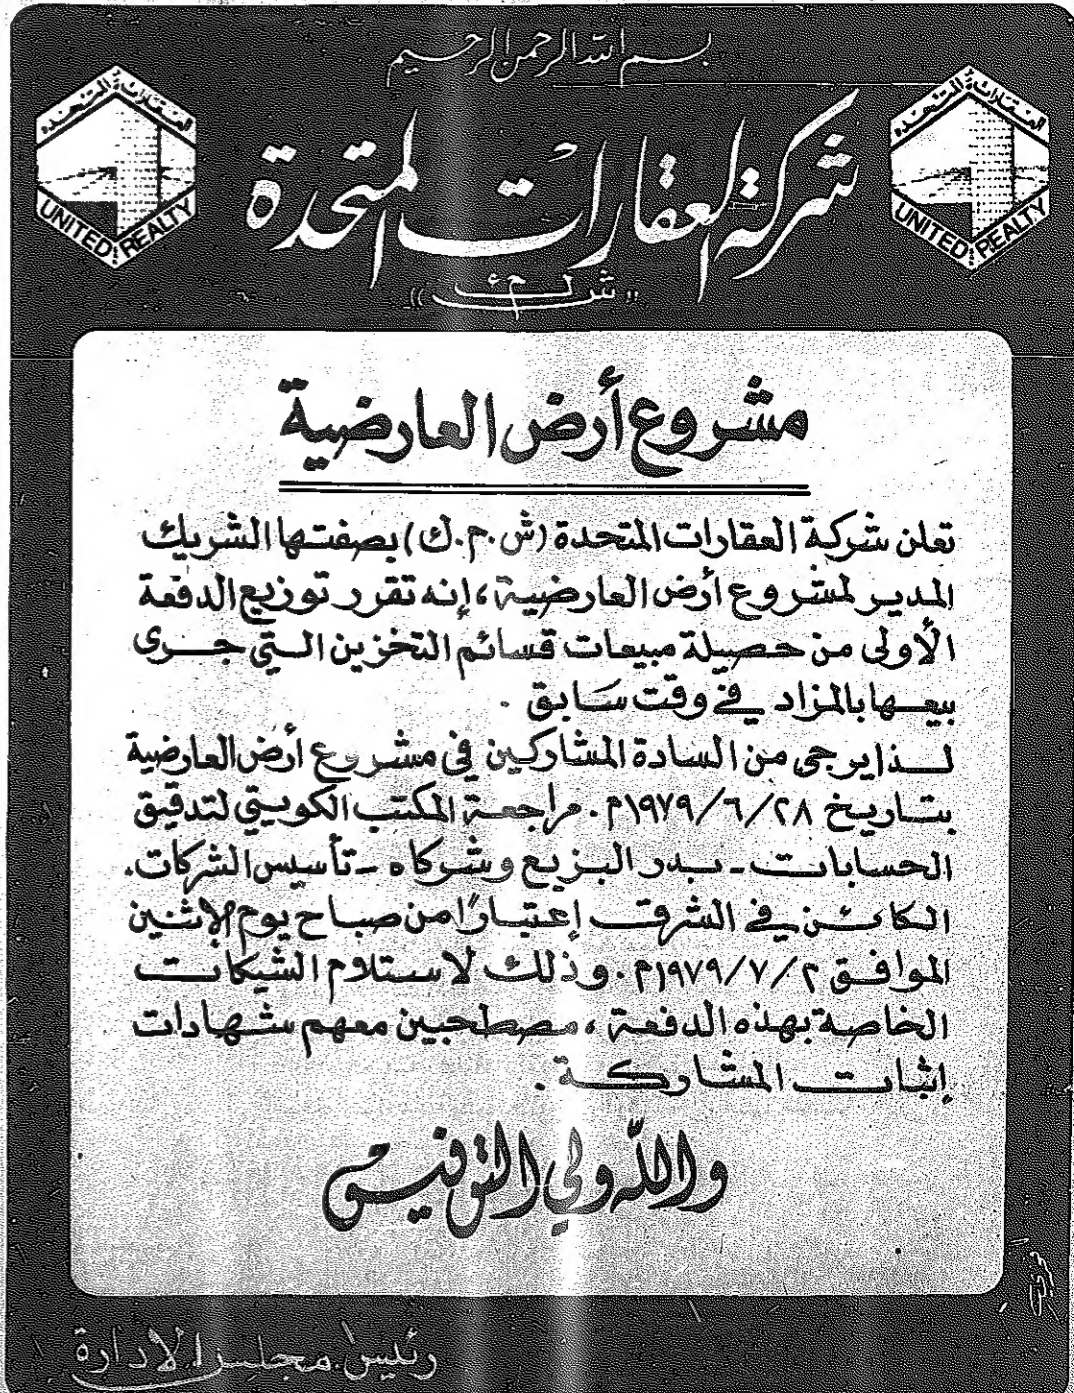 بسم الله الرحمن الرحيم
العقارات المتحدة
UNITED REALTY
شركة العقارات المتحدة
العقارات المتحدة
UNITED REALTY
"ش.م.ك"
مشروع أرض العارضية
تعلن شركة العقارات المتحدة (ش.م.ك) بصفتها الشريك
المدير لمشروع أرض العارضية، إنه تقرر توزيع الدفعة
الأولى من حصيلة مبيعات قسائم التخزين التي جرى
بيعها بالمزاد في وقت سابق.
لذا يرجى من السادة المشاركين في مشروع أرض العارضية
بتاريخ ١٩٧٩/٦/٢٨م. مراجعة المكتب الكويتي لتدقيق
الحسابات - بدر البزيع وشركاه - تأسيس الشركات.
الكائن في الشرق إعتبارًا من صباح يوم الاثنين
الموافق ١٩٧٩/٧/٢م. وذلك لاستلام الشيكات
الخاصة بهذه الدفعة، مصطحبين معهم شهادات
إثبات المشاركة.
والله ولي التوفيق
رئيس مجلس الادارة